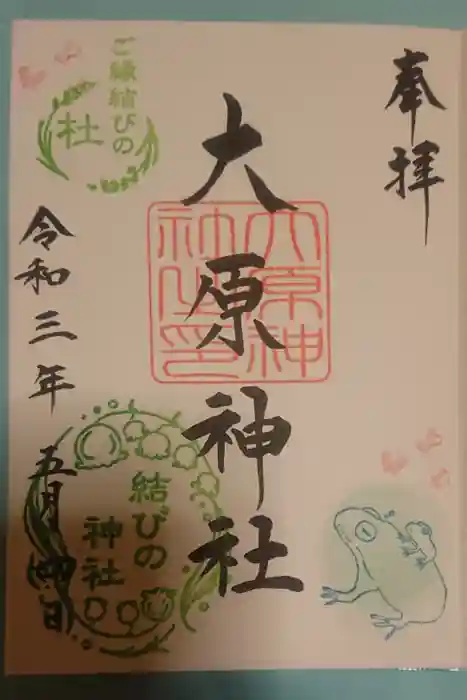 奉拝
大原神社
大原神
社之印
ご縁結びの
杜
令和三年五月四日
結びの
神社